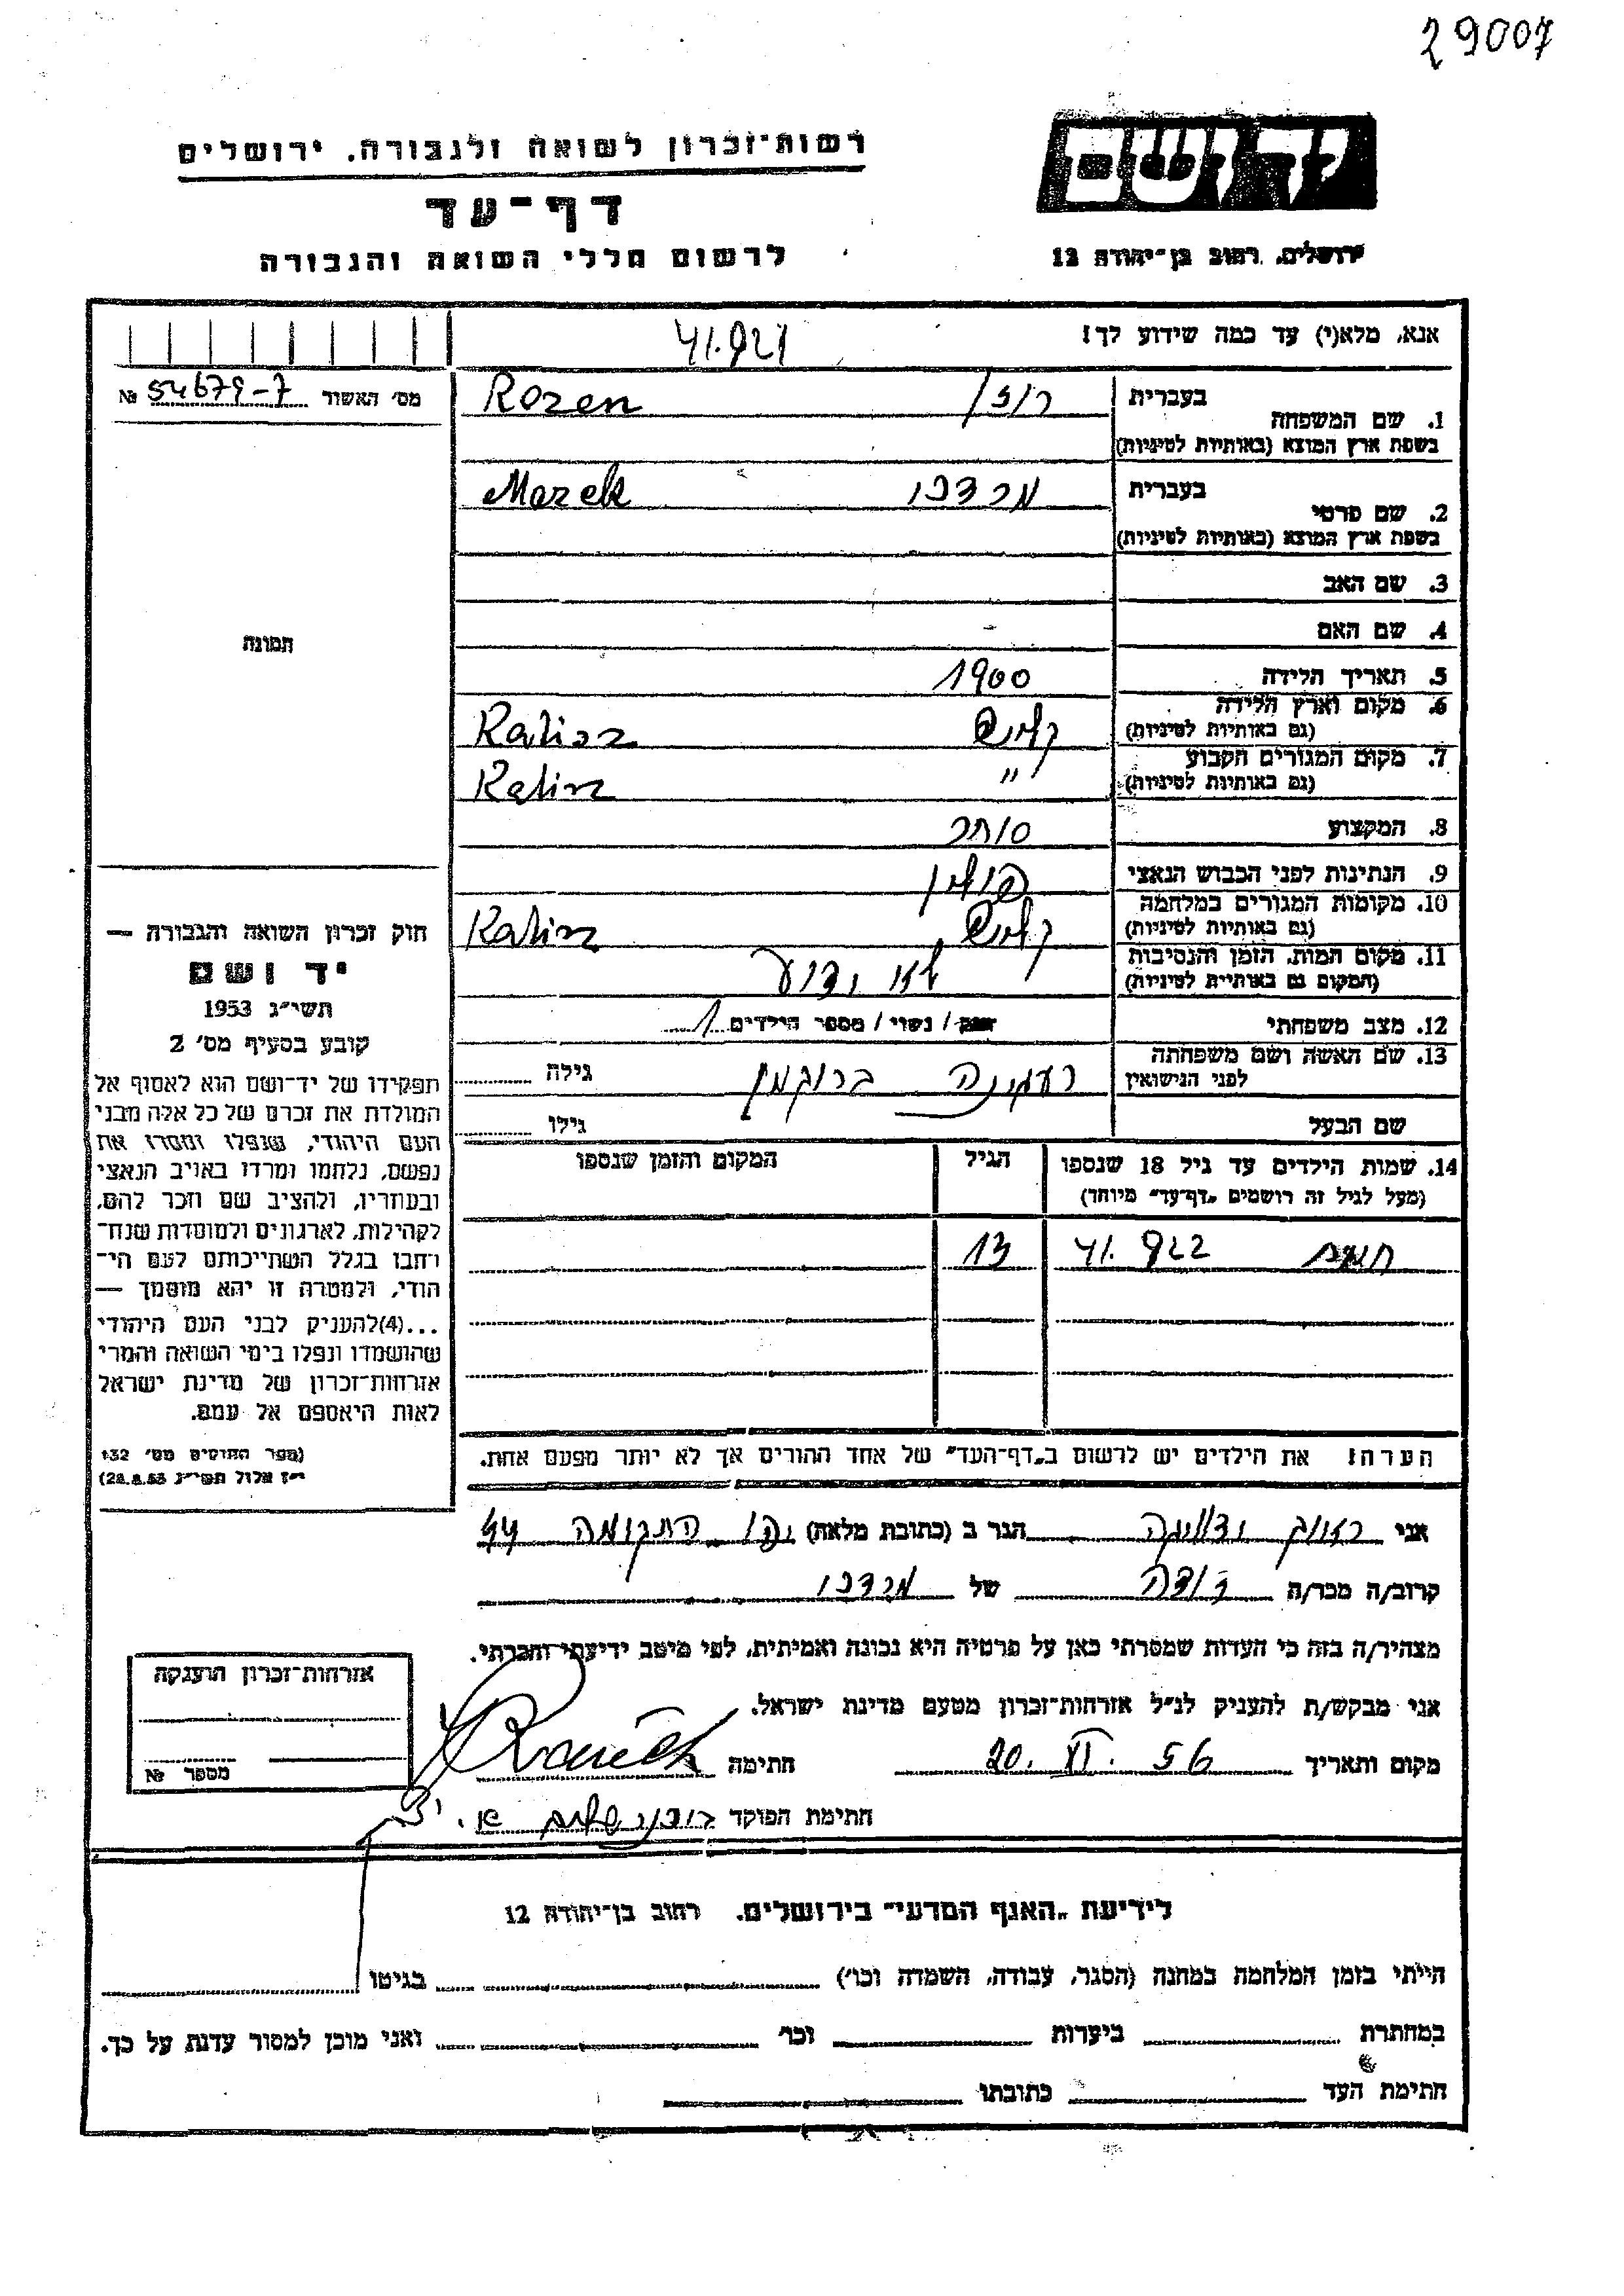 29007
יד ושם
רשות־זכרון לשואה ולגבורה, ירושלים
דף־עד
לרשום חללי השואה והגבורה
ירושלים, רחוב בן־יהודה 12
אנא, מלא(י) עד כמה שידוע לך!
41.921
מס׳ האשור № 54679-7
תמונה
1. שם המשפחה בעברית רוזן Rozen
בשפת ארץ המוצא (באותיות לטיניות)
2. שם פרטי בעברית מרדכי Marek
בשפת ארץ המוצא (באותיות לטיניות)
3. שם האב
4. שם האם
5. תאריך הלידה 1900
6. מקום וארץ הלידה קליש Kalisz
(גם באותיות לטיניות)
7. מקום המגורים הקבוע " Kalisz
(גם באותיות לטיניות)
8. המקצוע סוחר
9. הנתינות לפני הכבוש הנאצי פולין
10. מקומות המגורים במלחמה קליש Kalisz
(גם באותיות לטיניות)
11. מקום המות, הזמן והנסיבות לא ידוע
(המקום גם באותיות לטיניות)
12. מצב משפחתי רווק / נשוי / מספר הילדים 1
13. שם האשה ושם משפחתה רעגינה ברוקמן גילה
לפני הנישואין
שם הבעל גילו
14. שמות הילדים עד גיל 18 שנספו הגיל המקום והזמן שנספו
(מעל לגיל זה רושמים „דף־עד” מיוחד)
41. 922 13
הערה: את הילדים יש לרשום ב„דף־העד” של אחד ההורים אך לא יותר מפעם אחת.
חוק זכרון השואה והגבורה —
יד ושם
תשי״ג 1953
קובע בסעיף מס׳ 2
תפקידו של יד־ושם הוא לאסוף אל
המולדת את זכרם של כל אלה מבני
העם היהודי, שנפלו ומסרו את
נפשם, נלחמו ומרדו באויב הנאצי
ובעוזריו, ולהציב שם וזכר להם,
לקהילות, לארגונים ולמוסדות שנח־
רבו בגלל השתייכותם לעם הי־
הודי, ולמטרה זו יהא מוסמך —
...(4)להעניק לבני העם היהודי
שהושמדו ונפלו בימי השואה והמרי
אזרחות־זכרון של מדינת ישראל
לאות היאספם אל עמם.
(ספר החוקים מס׳ 132
י״ז אלול תשי״ג 28.8.53)
אני הגר ב (כתובת מלאה) יפו התקומה 44
קרוב/ה מכר/ה דודה של מרדכי
מצהיר/ה בזה כי העדות שמסרתי כאן על פרטיה היא נכונה ואמיתית, לפי מיטב ידיעתי והכרתי.
אני מבקש/ת להעניק לנ״ל אזרחות־זכרון מטעם מדינת ישראל.
מקום ותאריך 20. VI. 56 חתימה
חתימת הפוקד
אזרחות־זכרון הוענקה
מספר №
לידיעת „האגף המדעי” בירושלים, רחוב בן־יהודה 12
הייתי בזמן המלחמה במחנה (הסגר, עבודה, השמדה וכו׳) בגיטו
במחתרת ביערות וכו׳ ואני מוכן למסור עדות על כך.
חתימת העד כתובתו